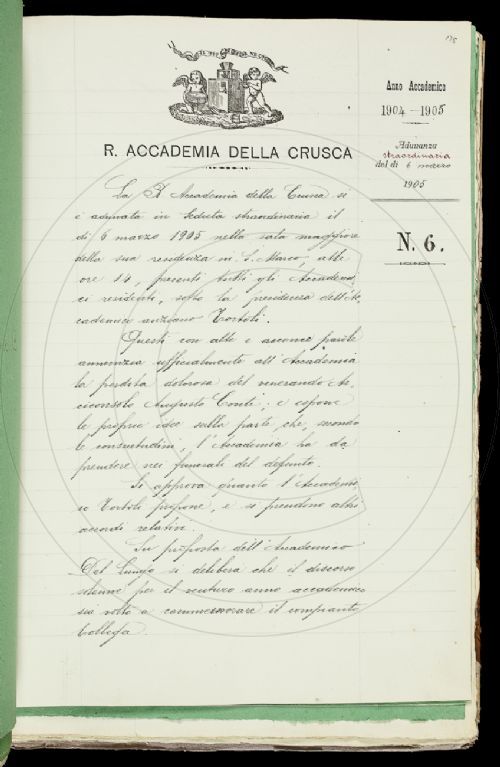 175
R. ACCADEMIA DELLA CRUSCA
Anno Accademico
1904-1905
Adunanza
straordinaria
del dì 6 marzo
1905
N. 6.
La R. Accademia della Crusca si
è adunata in seduta straordinaria il
dì 6 marzo 1905 nella sala maggiore
della sua residenza in S. Marco, alle
ore 14, presenti tutti gli Accademi-
ci residenti, sotto la presidenza dell'Ac-
cademico anziano Tortoli.
Questi con alte e acconce parole
annunzia ufficialmente all'Accademia
la perdita dolorosa del venerando Ar-
ciconsolo Augusto Conti; e espone
le proprie idee sulla parte che, secondo
le consuetudini, l'Accademia ha da
prendere nei funerali del defunto.
Si approva quanto l'Accademi-
co Tortoli propone, e si prendono altri
accordi relativi.
Su proposta dell'Accademico
Del Lungo si delibera che il discorso
solenne per il venturo anno accademico
sia volto a commemorare il compianto
Collega.